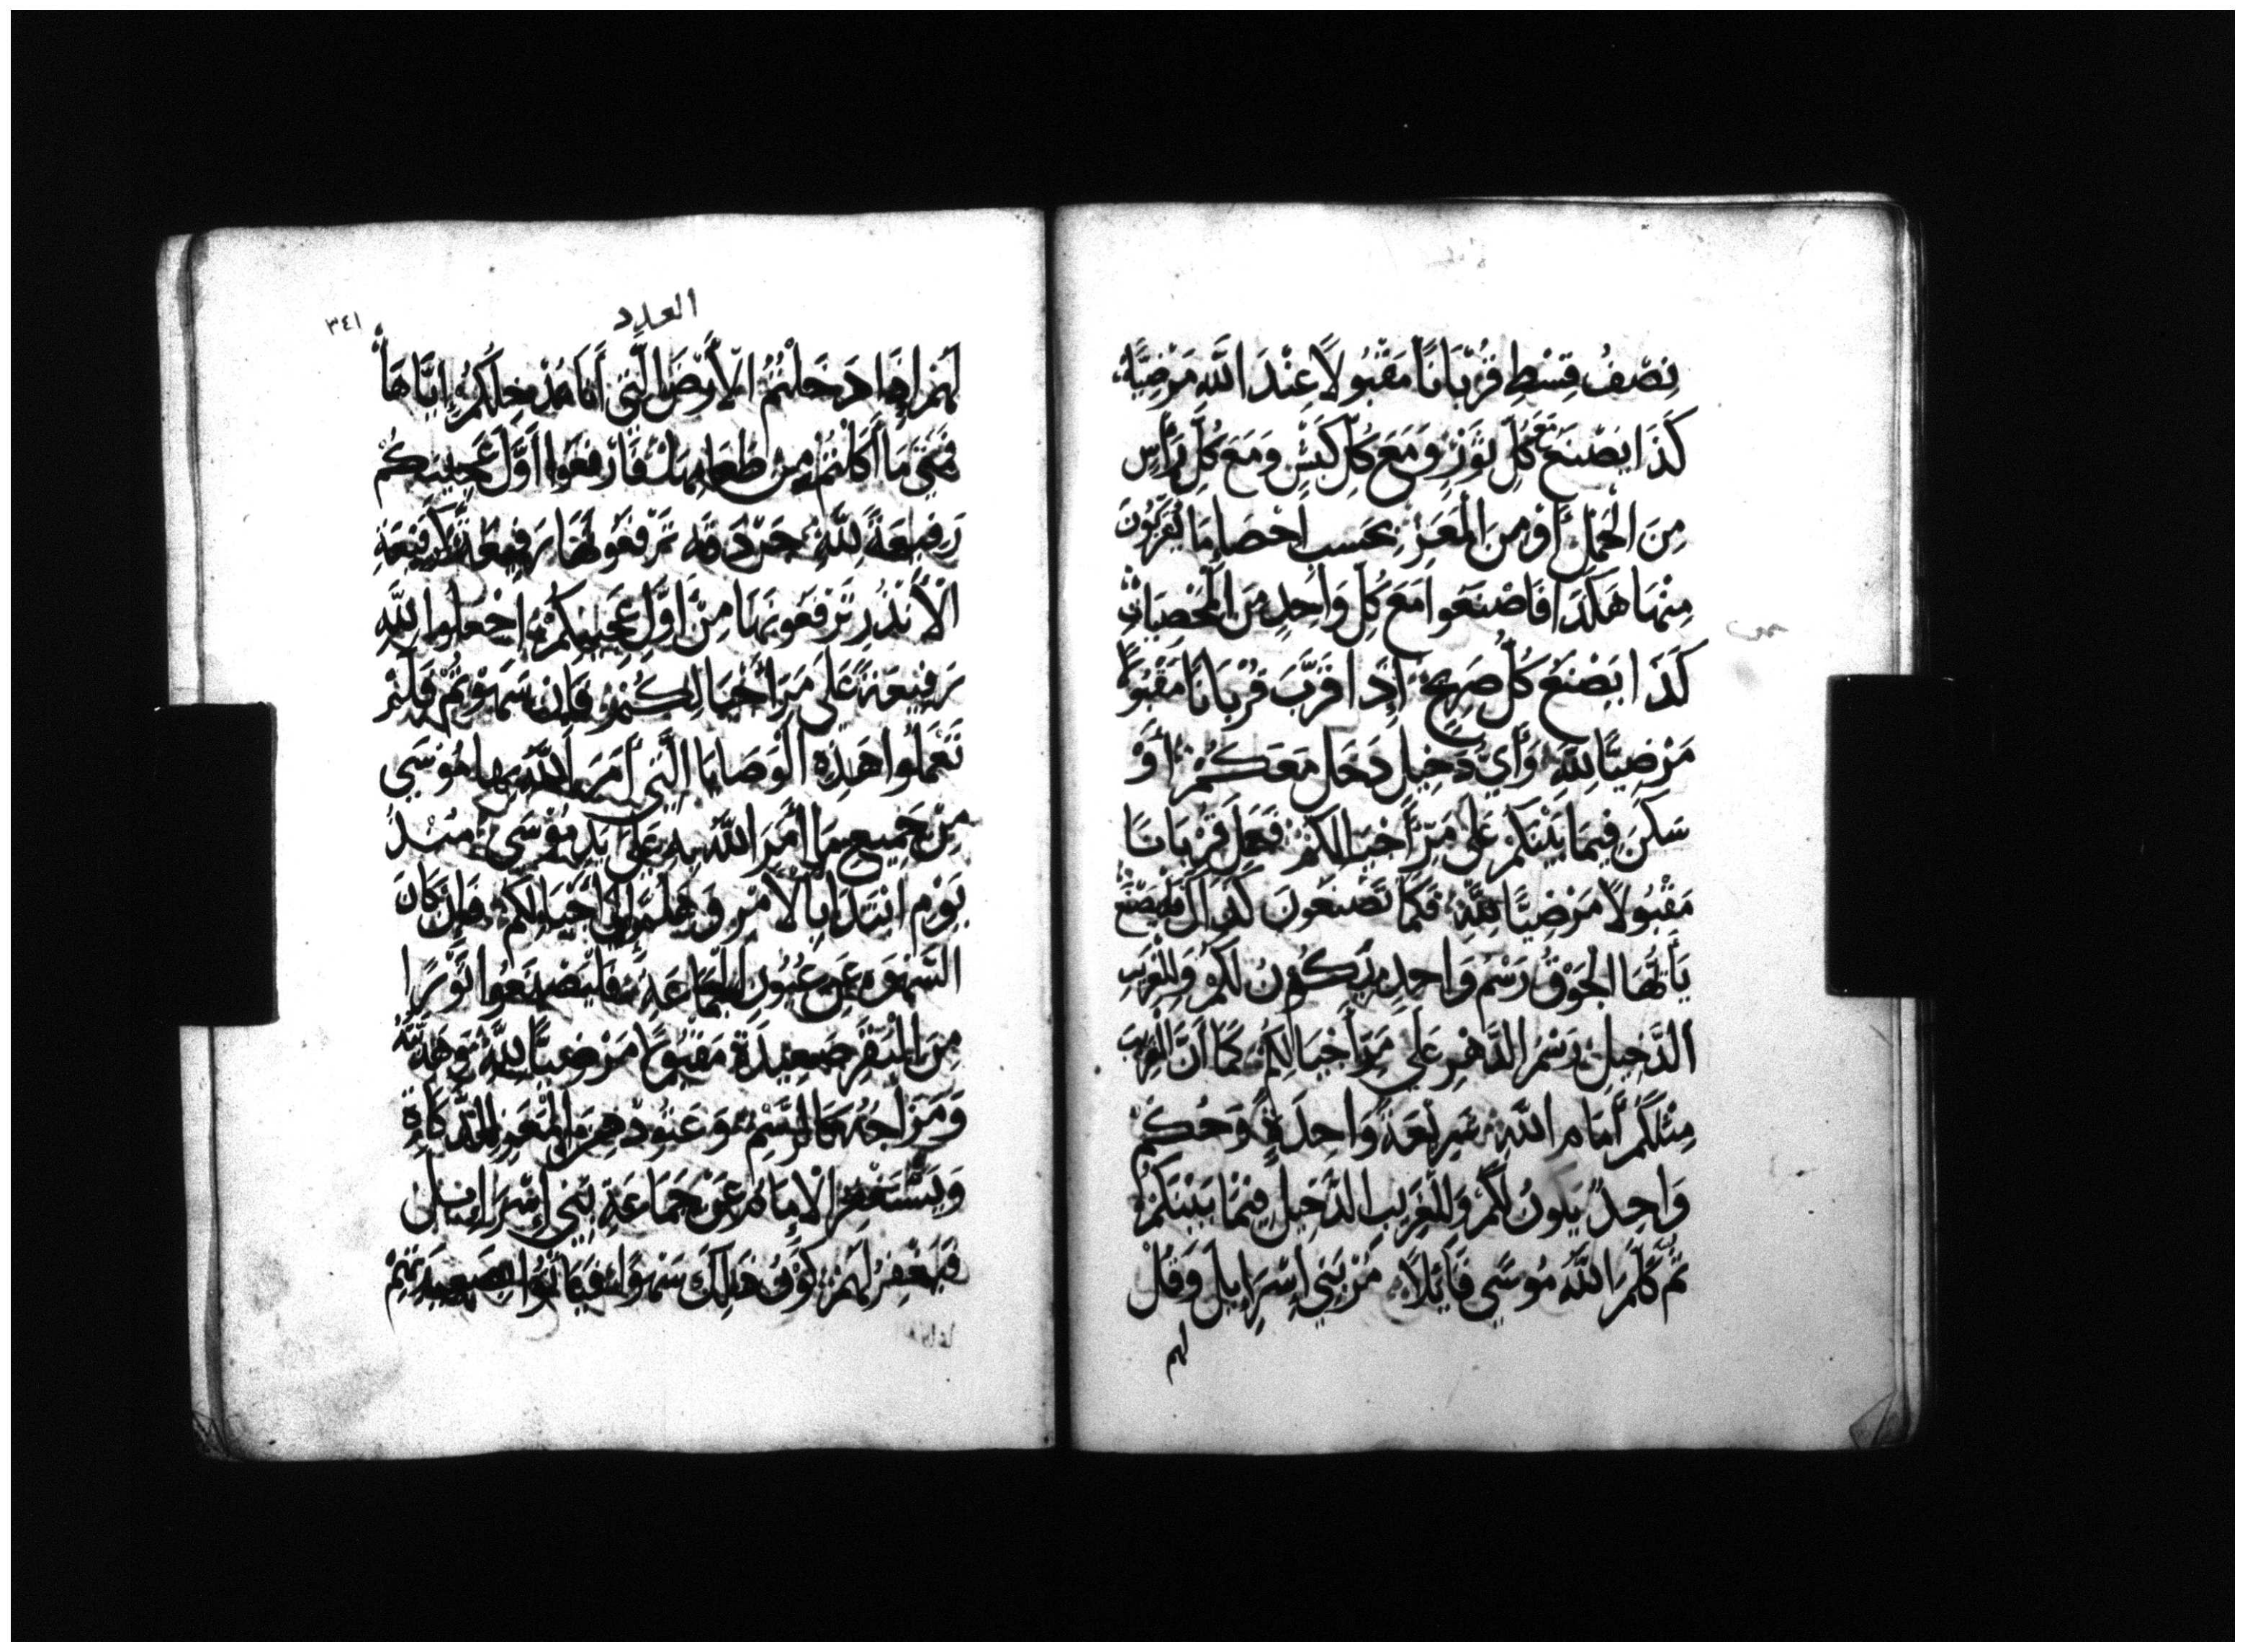 نِصْفُ قِسْطٍ قُرْبَانًا مَقْبُولًا عِنْدَ اللَّهِ مَرْضِيًّا
كَذَا يُصْنَعُ مَعَ كُلِّ ثَوْرٍ وَمَعَ كُلِّ كَبْشٍ وَمَعَ كُلِّ رَأْسٍ
مِنَ الْحَمَلِ أَوْ مِنَ الْمَعَزِ بِحَسَبِ إِحْصَا مَا تُقَرِّبُونَ
مِنْهَا هَكَذَا فَاصْنَعُوا مَعَ كُلِّ وَاحِدٍ مِنَ الْمُحْصَيَاتِ
كَذَا يَصْنَعُ كُلُّ صَرِيحٍ إِذَا قَرَّبَ قُرْبَانًا مَقْبُولًا
مَرْضِيًّا لِلَّهِ وَأَيُّ دَخِيلٍ دَخَلَ مَعَكُمْ أَوْ
سَكَنَ فِيمَا بَيْنَكُمْ عَلَى مَرِّ أَجْيَالِكُمْ فَعَلَ قُرْبَانًا
مَقْبُولًا مَرْضِيًّا لِلَّهِ فَكَمَا تَصْنَعُونَ كَذَاكَ فَلْيَصْنَعْ
يَا أَيُّهَا الْجَوْقُ رَسْمٌ وَاحِدٌ يَكُونُ لَكُمْ وَلِلْغَرِيبِ
الدَّخِيلِ رَسْمُ الدَّهْرِ عَلَى مَرِّ أَجْيَالِكُمْ كَمَا أَنَّ الْغَرِيبَ
مِثْلَكُمْ أَمَامَ اللَّهِ شَرِيعَةٌ وَاحِدَةٌ وَحُكْمٌ
وَاحِدٌ يَكُونُ لَكُمْ وَلِلْغَرِيبِ الدَّخِيلِ فِيمَا بَيْنَكُمْ
ثُمَّ كَلَّمَ اللَّهُ مُوسَى قَائِلًا مُرْ بَنِي إِسْرَايِلَ وَقُلْ
لهم
العدد
٣٤١
لَهُمْ إِذَا دَخَلْتُمُ الْأَرْضَ الَّتِي أَنَا مُدْخِلُكُمْ إِيَّاهَا
فَمَتَى مَا أَكَلْتُمْ مِنْ طَعَامِهَا فَارْفَعُوا أَوَّلَ عَجِينِكُمْ
رَفِيعَةً لِلَّهِ جَرْدَقَه تَرْفَعُوهَا رَفِيعَةً كَرَفِيعَةِ
الْأَنْدَرِ تَرْفَعُونَهَا مِنْ أَوَّلِ عَجِينِكُمْ اجْعَلُوا لِلَّهِ
رَفِيعَةً عَلَى مَرِّ أَجْيَالِكُمْ فَإِنْ سَهَوْتُمْ فَلَمْ
تَعْمَلُوا هَذِهِ الْوَصَايَا الَّتِي أَمَرَ اللَّهُ بِهَا مُوسَى
مِنْ جَمِيعِ مَا أَمَرَ اللَّهُ بِهِ عَلَى يَدِ مُوسَى مُنْذُ
يَوْمِ ابْتَدَا بِالْأَمْرِ وَهَلُمَّ إِلَى أَجْيَالِكُمْ فَإِنْ كَانَ
السَّهْوُ عَنْ عُيُونِ الْجَمَاعَةِ فَلْيَصْنَعُوا ثَوْرًا
مِنَ الْبَقَرِ صَعِيدَةً مَقْبُولًا مَرْضِيًّا لِلَّهِ وَهَدِيَّتُهُ
وَمِزَاجُهُ كَالرَّسْمِ وَعَتُودٌ مِنَ الْمَعَزِ لِلذَّكَاةِ
وَيَسْتَغْفِرُ الْإِمَامُ عَنْ جَمَاعَةِ بَنِي إِسْرَايِلَ
فَيُغْفَرُ لَهُمْ كَوْنُ ذَلِكَ سَهْوًا فَيَأْتُوا بِصَعِيدَتِهِمْ